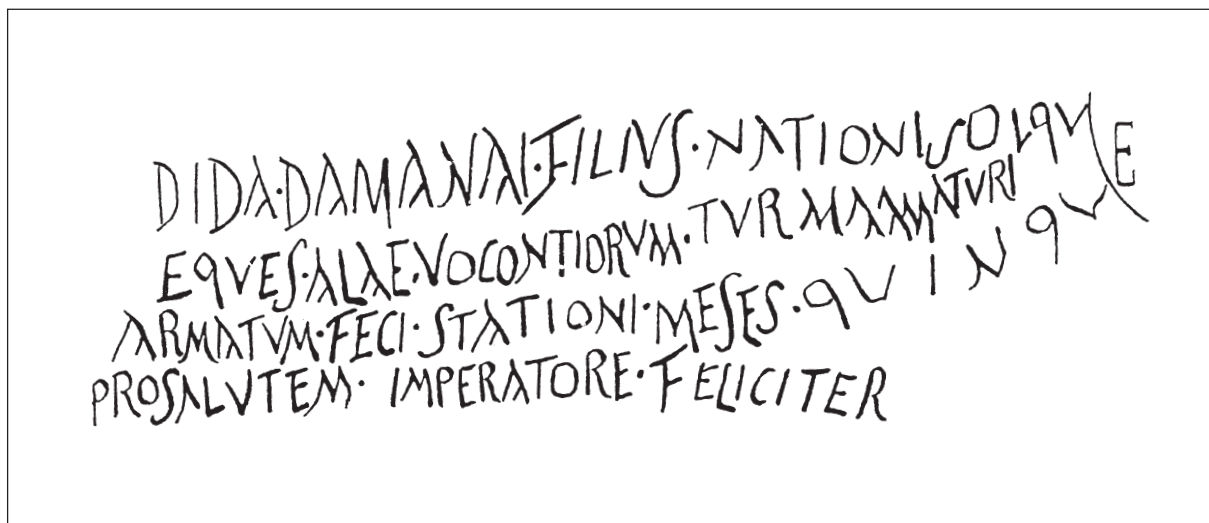 DIDA·DAMANAI·FILIVS·NATIONISOLQVE
EQVES·ALAE·VOCONTIORVM·TVRMAMATVRI
ARMATVM·FECI·STATIONI·MESES·QVINQV
PROSALVTEM· IMPERATORE·FELICITER